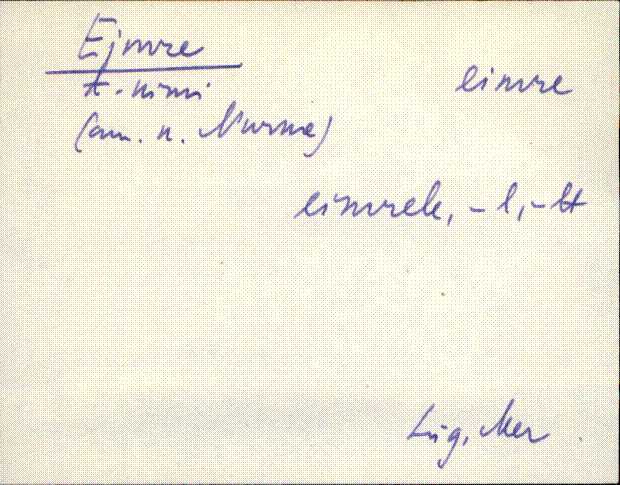 Ejmre
eimre
t. nimi
(am. n. Nurme)
eimrele, -l, -lt
Lüg, Mer